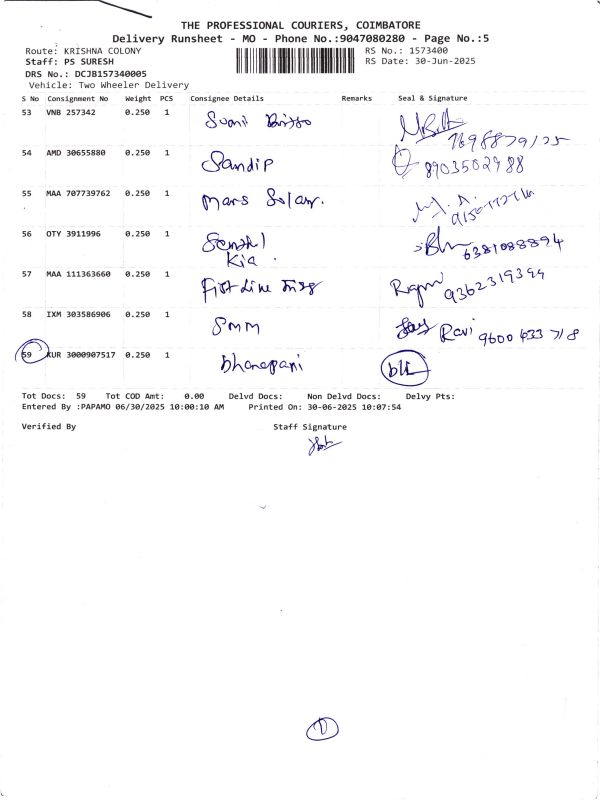 THE PROFESSIONAL COURIERS, COIMBATORE
Delivery Runsheet - MO - Phone No.:9047080280 - Page No.:5
Route: KRISHNA COLONY RS No.: 1573400
Staff: PS SURESH RS Date: 30-Jun-2025
DRS No.: DCJB157340005
Vehicle: Two Wheeler Delivery
S No Consignment No Weight PCS Consignee Details Remarks Seal & Signature
53 VNB 257342 0.250 1 Sunil
54 AMD 30655880 0.250 1 Sandip 8903502988
55 MAA 707739762 0.250 1 Mans
56 OTY 3911996 0.250 1 6381088894
Kia
57 MAA 111363660 0.250 1 First Line 9362319394
58 IXM 303586906 0.250 1 SMM Ravi 9600 633 718
59 KUR 3000907517 0.250 1
Tot Docs: 59 Tot COD Amt: 0.00 Delvd Docs: Non Delvd Docs: Delvy Pts:
Entered By :PAPAMO 06/30/2025 10:00:10 AM Printed On: 30-06-2025 10:07:54
Verified By Staff Signature